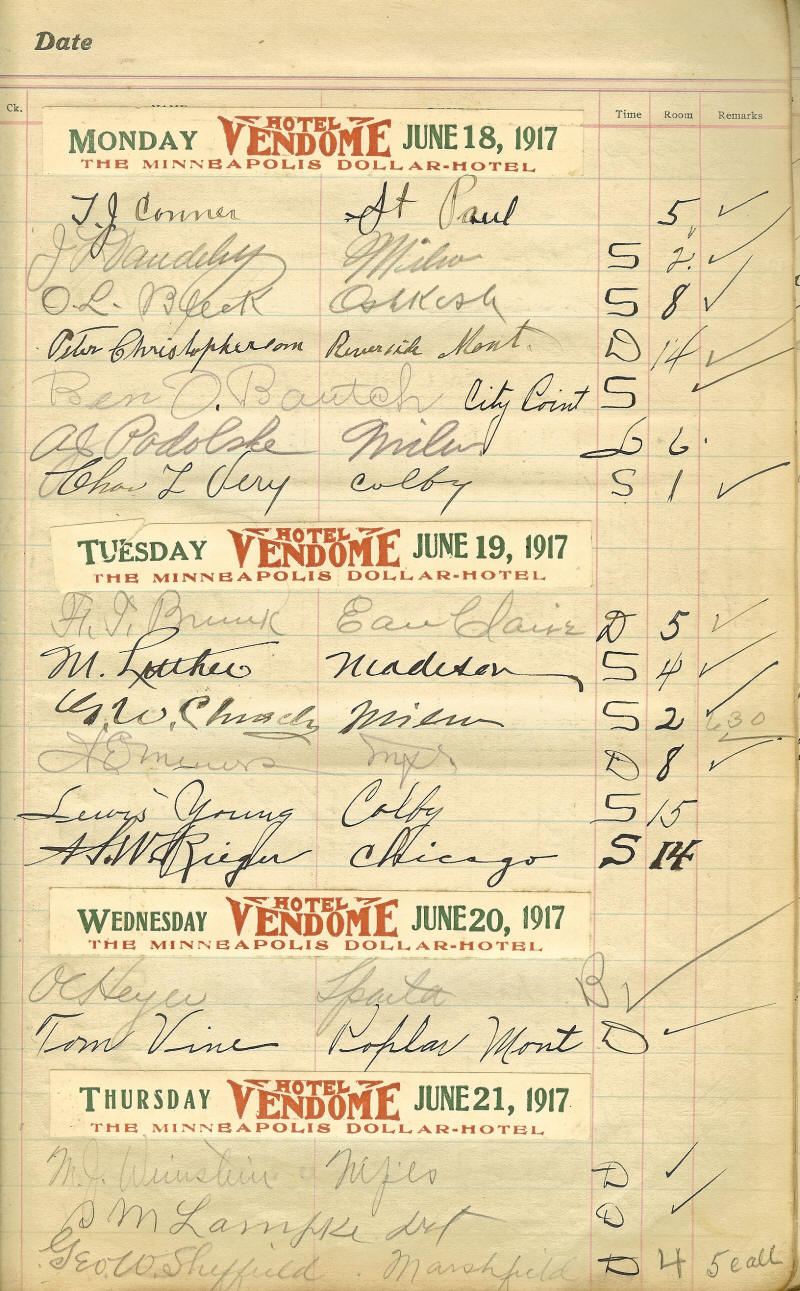 Date
Ck. NAME Time Room Remarks
MONDAY HOTEL VENDOME JUNE 18, 1917
THE MINNEAPOLIS DOLLAR-HOTEL
T. J. Conner St Paul 5 ✓
Milw S 2 ✓
O. L. Bleck Oshkosh S 8 ✓
Peter Christopherson Riverside Mont. D 14 ✓
Ben O. Bautch City Point S ✓
A J Podolske Milw D 6
Chas L Very Colby S 1 ✓
TUESDAY HOTEL VENDOME JUNE 19, 1917
THE MINNEAPOLIS DOLLAR-HOTEL
H. J. Brunk Eau Claire D 5 ✓
M. Luther Madison S 4 ✓
G. W. Milw S 2 ✓ 630
D 8 ✓
Lewis Young Colby S 15
Rieger Chicago S 14
WEDNESDAY HOTEL VENDOME JUNE 20, 1917
THE MINNEAPOLIS DOLLAR-HOTEL
O C Heyer Sparta B ✓
Tom Vine Poplar Mont D ✓
THURSDAY HOTEL VENDOME JUNE 21, 1917
THE MINNEAPOLIS DOLLAR-HOTEL
M. J. Weinstein Mpls D ✓
M Lampke D ✓
Geo. W. Sheffield Marshfield D 4 5 call